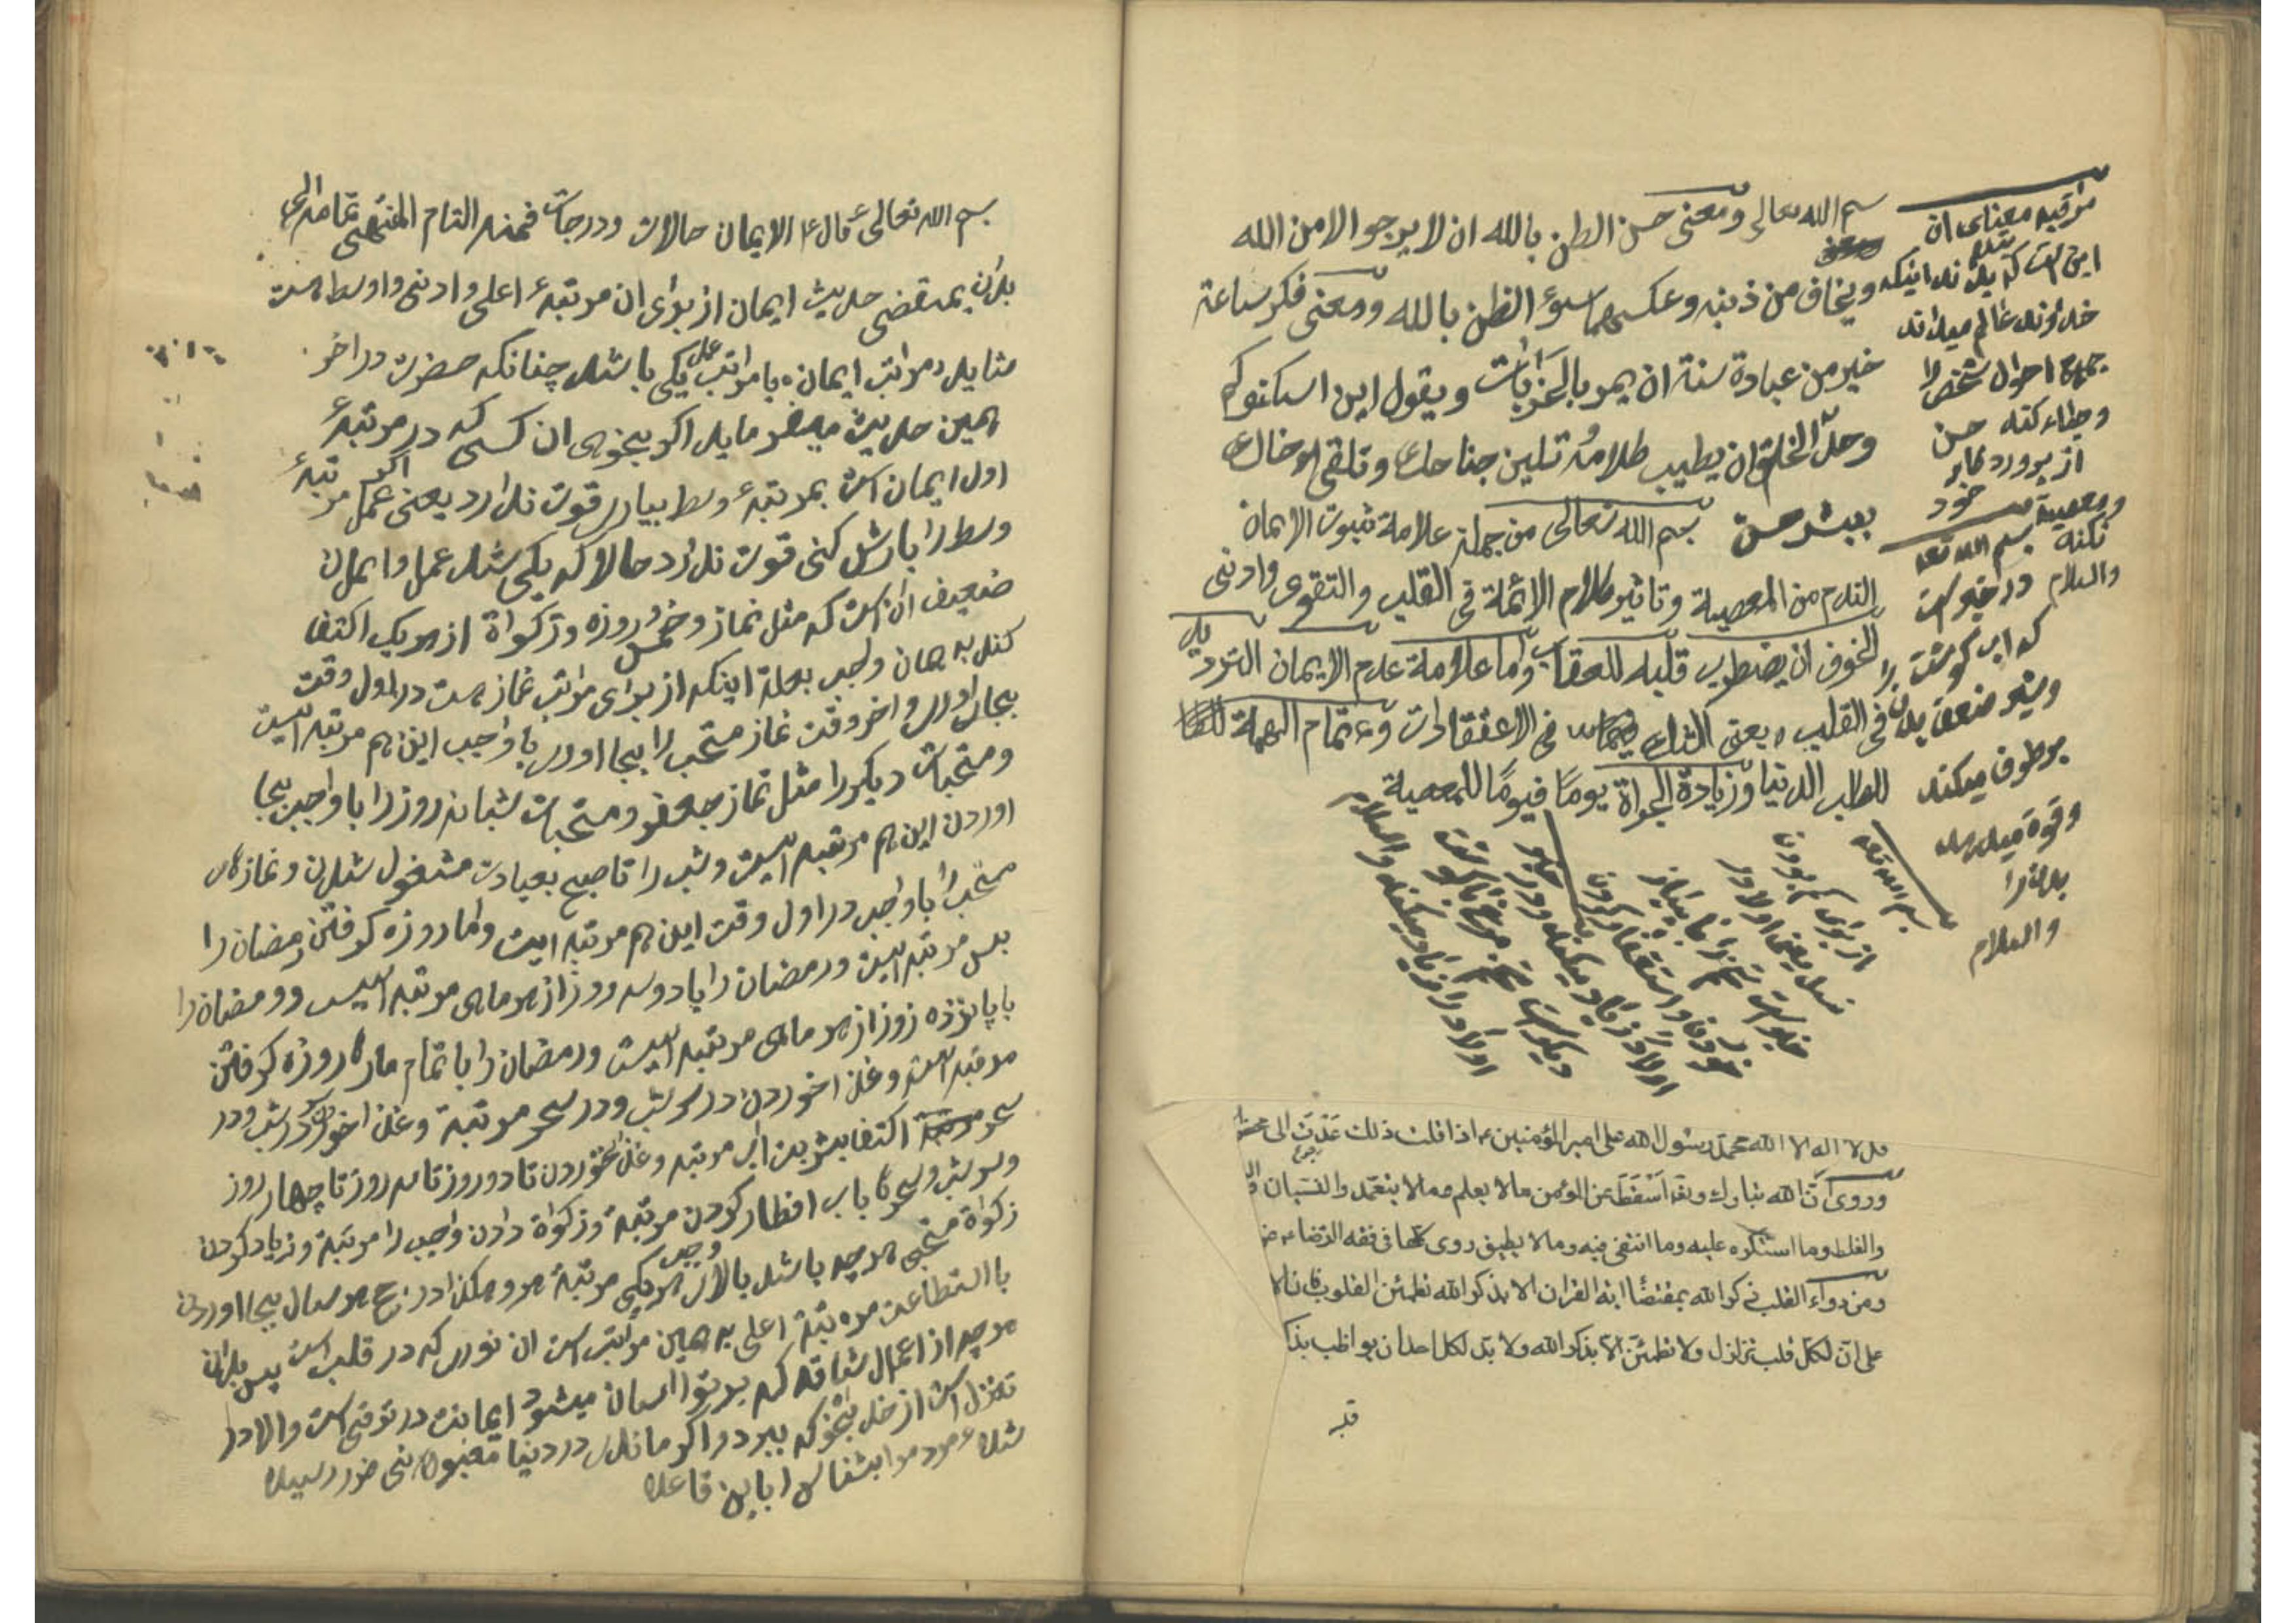 بسم الله تعالی ومعنی حسن الظن بالله ان لا یرجو الا من الله
ویخاف من ذنبه وعکسهما سوء الظن بالله ومعنی فکر ساعة
خیر من عبادة سنة ان یمر بالخرابات ویقول این اسکنوک
وحد الخلق ان یطیب کلامه تلین جناحک وتلقی لاخاک
ببشر حسن بسم الله تعالی من جملة علامة ثبوت الایمان
الندم من المعصیة وتاثیر کلام الائمة فی القلب والتقوی وادنی
الخوف ان یضطرب قلبه للعقاب واما علامة عدم الایمان التردید
فی القلب یعنی الشک فی الاعتقادات وعتمام الهمة
للطلب الدنیا وزیادة الجراة یوما فیوما للمعصیة
مراقبه معنای ان
این است که بداند اینکه
خداوند عالم میداند
جمیع احوال شخص را
وحیاء کند
از پرورد کار
خود
ومعصیة
نکند
والسلام
بسم الله تعه
در خبر است
که اب کوشت
وشیر ضعف بدن را
برطرف میکند
وقوة میدهد
بدن را
والسلام
بسم الله تعه
از برای
نسل یعنی اولاد
خبر است
اولاد زیاد میکند
دیکر است تخم مرغ
اولاد را زیاد میکند والسلام
قل لا اله الا الله محمد رسول الله علی امیر المؤمنین اذا قلت ذلک عدت الی
وروی ان الله تبارک وتعه اسقط عن المؤمن ما لا یعلم وما لا یتعمد والنسیان
والغلط وما استکره علیه وما اتقی فیه وما لا یطیق روی کلها فی فقه الرضا
ومن دواء القلب ذکر الله بمقتضا ایة القران الا بذکر الله تطمئن القلوب
علی ان لکل قلب تزلزل ولا تطمئن الا بذکر الله ولا بد لکل احد ان یواظب بذکر
قلبه
بسم الله تعالی قال ع الایمان حالات ودرجات فمنه التام المنتهی تمامه الی
بدان بمقتضی حدیث ایمان از برای ان مرتبه اعلی وادنی واوسط هست
مراتب ایمان با مراتب عمل یکی باشد چنانکه حضرت در اخر
همین حدیث میفرماید اکر بخوهی ان کسی که در مرتبه
اول ایمان است بمرتبه وسط بیاری قوت ندارد یعنی عمل مرتبه
وسط را بارش کنی قوت ندارد حالا که یکی شد عمل وایمان
ضعیف ان است که مثل نماز وخمس وروزه وزکواة از هر یک اکتفا
کند به همان واجب بعلة اینکه از برای مراتب نماز هست در اول وقت
بجا اوردن واخر وقت نماز مستحب را بجا اوردن با واجب این هم مرتبه ایست
ومستحبات دیکر را مثل نماز جعفر ومستحبات شبانه روز را با واجب بجا
اوردن این هم مرتبه ایست وشب را تا صبح بعبادت مشغول شدن ونمازهای
مستحب را با واجب در اول وقت این هم مرتبه ایست واما روزه کرفتن رمضان را
بس مرتبه ایست ورمضان را با دو سه روز از هر ماهی مرتبه ایست ورمضان را
با پانزده روز از هر ماهی مرتبه ایست ورمضان را با تمام ماه روزه کرفتن
مرتبه ایست وغذا خوردن در سر شب ودر سحر مرتبة وغذا خوردن در شب ودر
سحر اکتفا بشربت اب مرتبه وغذا نخوردن تا دو روز تا سه روز تا چهار روز
وسر شب وسحر با اب افطار کردن مرتبة وزکواة دادن واجب را مرتبة وزیاد کردن
زکواة مستحبی هر چه باشد بالای واجب هر یکی مرتبة وهکذا در حج هر سال بجا اوردن
با استطاعت مرتبة اعلی به همین مراتب است ان نوری که در قلب است پس بدان
هر چه از اعمال شاقه که بر تو اسان میشود ایمانت در ترقی است والا در
تنزل است از خدا بخو که ببرد اکر ماندی در دنیا مغبونی ضرر رسیده
شده مرد را بشناس با این قاعده